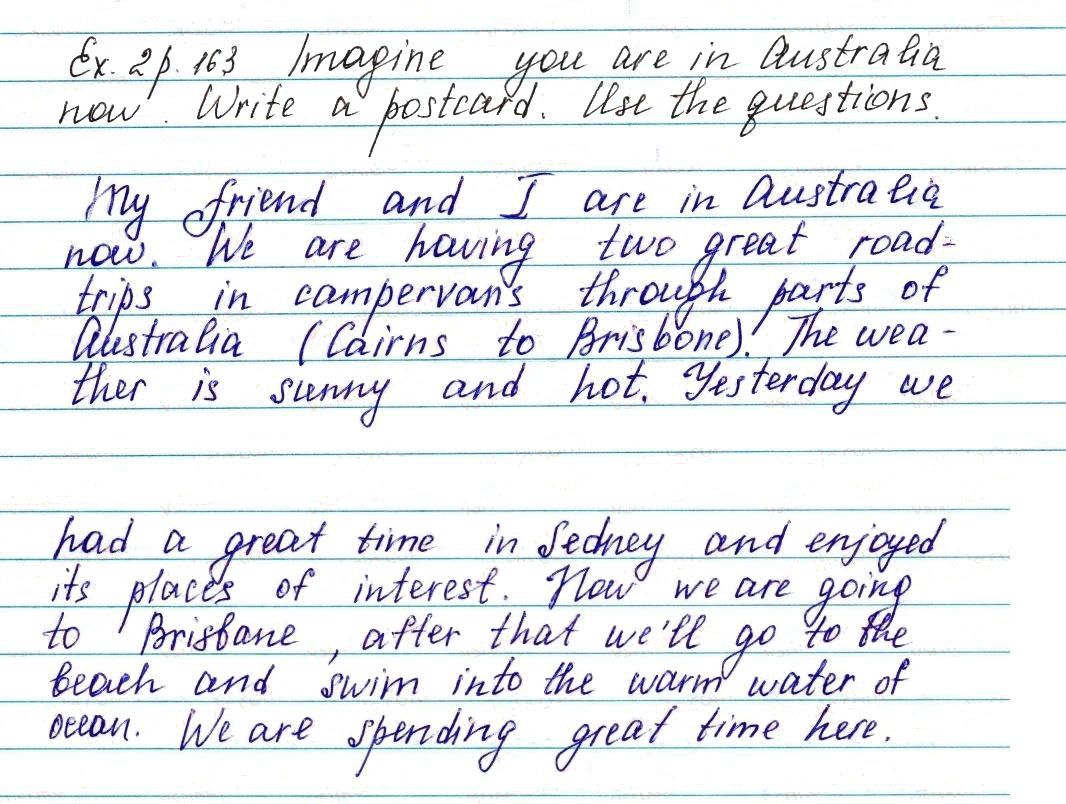 Ex. 2 p. 163 Imagine you are in Australia
now. Write a postcard. Use the questions.
My friend and I are in Australia
now. We are having two great road-
trips in campervans through parts of
Australia (Cairns to Brisbone). The wea-
ther is sunny and hot. Yesterday we
had a great time in Sedney and enjoyed
its places of interest. Now we are going
to Brisbane, after that we'll go to the
beach and swim into the warm water of
ocean. We are spending great time here.